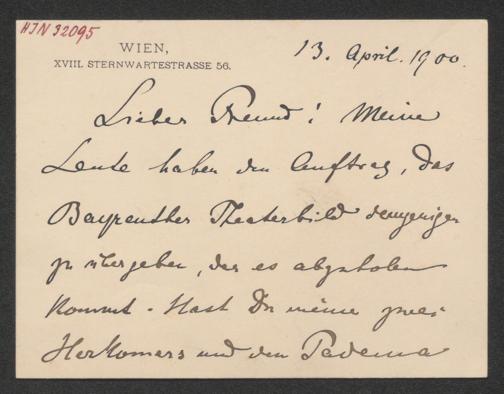 HIN 32095
WIEN,
XVIII. STERNWARTESTRASSE 56.
13. April. 1900.
Lieber Freund! Meine
Leute haben den Auftrag, das
Bayreuther Theaterbild demjenigen
zu übergeben, der es abzuholen
kommt. Hast Du meine zwei
Herkomers und den